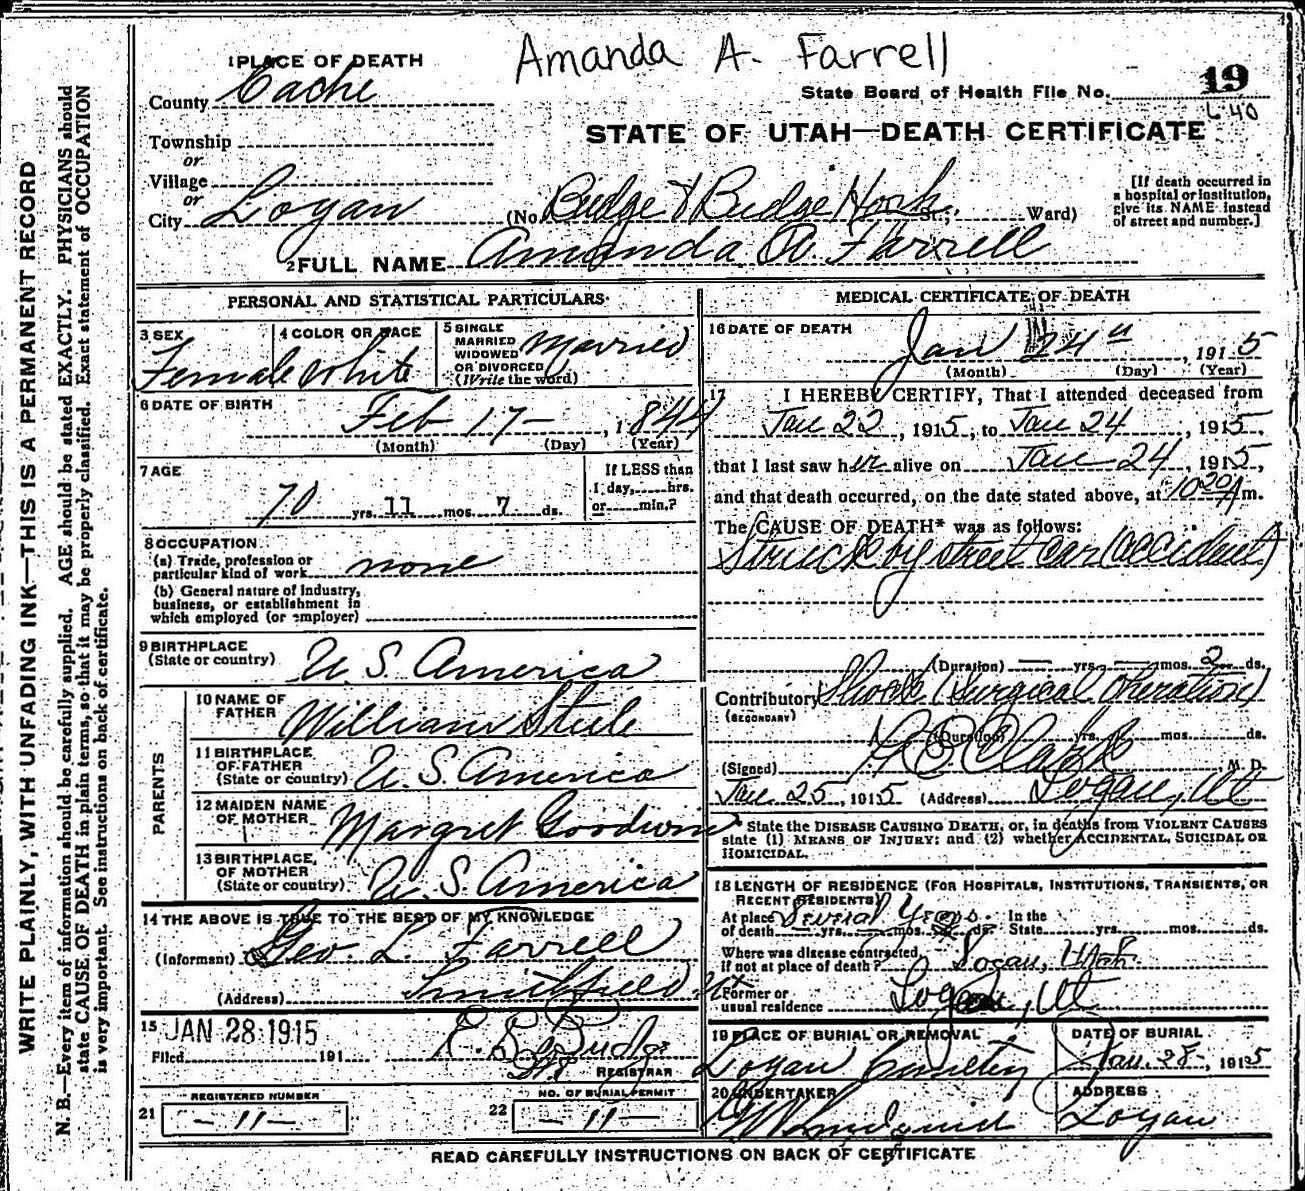 Amanda A. Farrell
1 PLACE OF DEATH
19
County Cache
State Board of Health File No.
640
Township
STATE OF UTAH—DEATH CERTIFICATE
or
Village
or
City Logan (No. Budge & Budge Hosp. St.; Ward)
[If death occurred in
a hospital or institution,
give its NAME instead
of street and number.]
2 FULL NAME Amanda A. Farrell
PERSONAL AND STATISTICAL PARTICULARS
3 SEX
Female
4 COLOR OR RACE
White
5 SINGLE
MARRIED
WIDOWED
OR DIVORCED
(Write the word)
Married
6 DATE OF BIRTH
Feb 17 — , 1844
(Month) (Day) (Year)
7 AGE
70 yrs. 11 mos. 7 ds.
If LESS than
1 day, hrs.
or min.?
8 OCCUPATION
(a) Trade, profession or
particular kind of work none
(b) General nature of industry,
business, or establishment in
which employed (or employer)
9 BIRTHPLACE
(State or country) U S. America
PARENTS
10 NAME OF
FATHER William Steele
11 BIRTHPLACE
OF FATHER
(State or country) U. S. America
12 MAIDEN NAME
OF MOTHER Margret Goodwin
13 BIRTHPLACE
OF MOTHER
(State or country) U. S. America
14 THE ABOVE IS TRUE TO THE BEST OF MY KNOWLEDGE
(Informant) Geo. L. Farrell
(Address) Smithfield Ut
15 JAN 28 1915
Filed 191
E. S. Budge
REGISTRAR
REGISTERED NUMBER
21 — 11 —
NO. OF BURIAL PERMIT
22 — 11 —
MEDICAL CERTIFICATE OF DEATH
16 DATE OF DEATH
Jan 24th , 1915
(Month) (Day) (Year)
17 I HEREBY CERTIFY, That I attended deceased from
Jan 22 , 1915, to Jan 24 , 1915,
that I last saw her alive on Jan 24 , 1915,
and that death occurred, on the date stated above, at 10 20 A m.
The CAUSE OF DEATH* was as follows:
Struck by street car (accident)
(Duration) — yrs. — mos. 2 ds.
Contributory Shock (Surgical Operation)
(SECONDARY)
(Duration) yrs. mos. ds.
(Signed) Clark M. D.
Jan 25, 1915 (Address) Logan, Ut
* State the DISEASE CAUSING DEATH, or, in deaths from VIOLENT CAUSES
state (1) MEANS OF INJURY; and (2) whether ACCIDENTAL, SUICIDAL OR
HOMICIDAL.
18 LENGTH OF RESIDENCE (FOR HOSPITALS, INSTITUTIONS, TRANSIENTS, OR
RECENT RESIDENTS)
At place Several Years In the
of death yrs. mos. ds. State yrs. mos. ds.
Where was disease contracted,
if not at place of death? Logan, Utah
Former or
usual residence Logan, Ut
19 PLACE OF BURIAL OR REMOVAL
Logan
DATE OF BURIAL
Jan. 28, 1915
20 UNDERTAKER
ADDRESS
Logan
READ CAREFULLY INSTRUCTIONS ON BACK OF CERTIFICATE
WRITE PLAINLY, WITH UNFADING INK—THIS IS A PERMANENT RECORD
N. B.—Every item of information should be carefully supplied. AGE should be stated EXACTLY. PHYSICIANS should
state CAUSE OF DEATH in plain terms, so that it may be properly classified. Exact statement of OCCUPATION
is very important. See instructions on back of certificate.